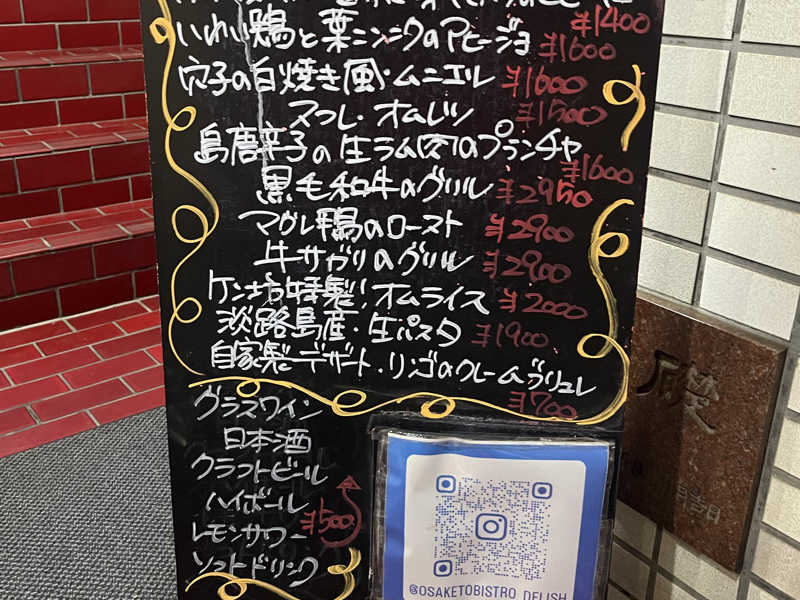 ¥1400
いわい鶏と葉ニンニクのアヒージョ ¥1600
穴子の白焼き風・ムニエル ¥1600
スフレ・オムレツ ¥1500
島唐辛子の生ラム肉のプランチャ
¥1600
黒毛和牛のグリル ¥2950
マグレ鴨のロースト ¥2900
牛サガリのグリル ¥2900
ケン坊特製!オムライス ¥2000
淡路島産・生パスタ ¥1900
自家製デザート・リンゴのクレームブリュレ
¥700
グラスワイン
日本酒
クラフトビール
ハイボール
¥500
レモンサワー
ソフトドリンク
@OSAKETOBISTRO_DELISH